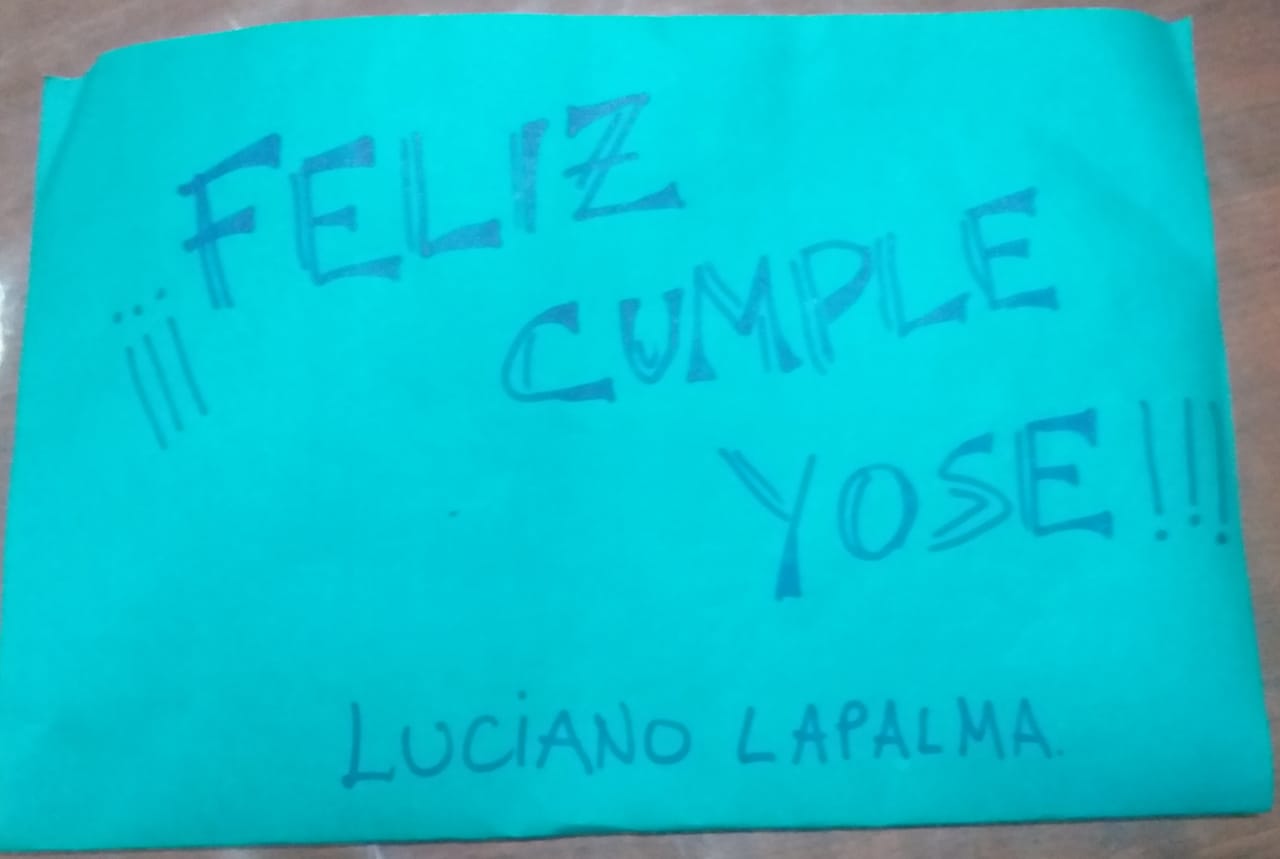 ¡¡¡FELIZ
CUMPLE
YOSE!!!
LUCiANO LAPALMA.